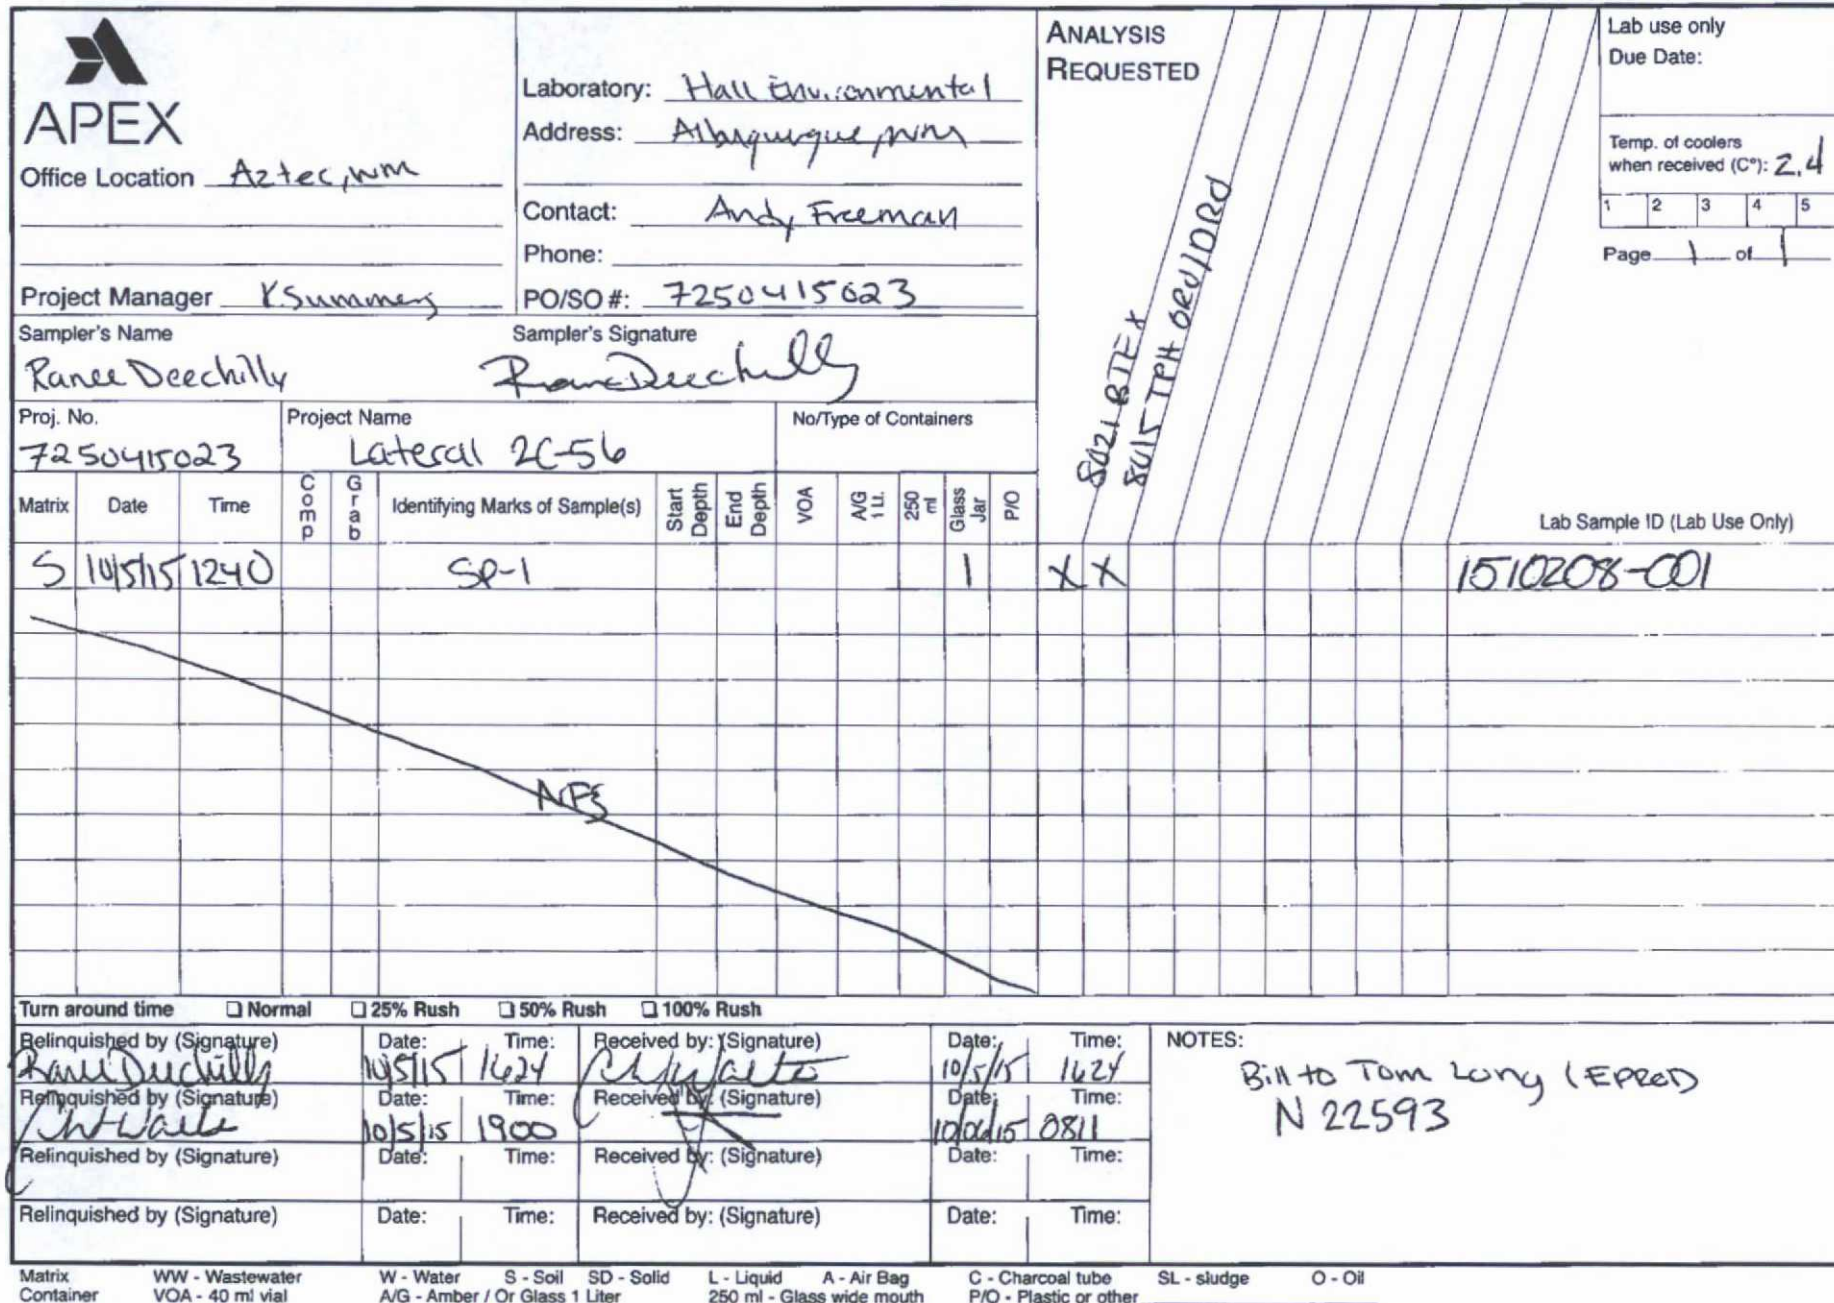 APEX
Office Location Aztec, NM
Project Manager K Summers
Laboratory: Hall Environmental
Address: Albuquerque, NM
Contact: Andy Freeman
Phone:
PO/SO #: 7250415023
ANALYSIS
REQUESTED
8021 BTEX
8015 TPH GRO/DRO
Lab use only
Due Date:
Temp. of coolers
when received (C°): 2.4
1 2 3 4 5
Page 1 of 1
Sampler's Name
Ranee Deechilly
Sampler's Signature
Ranee Deechilly
Proj. No.
7250415023
Project Name
Lateral 2C-56
No/Type of Containers
Matrix Date Time Comp Grab Identifying Marks of Sample(s) Start Depth End Depth VOA A/G 1 Lt. 250 ml Glass Jar P/O Lab Sample ID (Lab Use Only)
S 10/5/15 1240 SP-1 1 X X 1510208-001
NFS
Turn around time Normal 25% Rush 50% Rush 100% Rush
Relinquished by (Signature) Date: Time: Received by: (Signature) Date: Time:
Ranee Deechilly 10/5/15 1624 10/5/15 1624
Relinquished by (Signature) Date: Time: Received by: (Signature) Date: Time:
10/5/15 1900 10/06/15 0811
Relinquished by (Signature) Date: Time: Received by: (Signature) Date: Time:
Relinquished by (Signature) Date: Time: Received by: (Signature) Date: Time:
NOTES:
Bill to Tom Long (EPROD)
N 22593
Matrix WW - Wastewater W - Water S - Soil SD - Solid L - Liquid A - Air Bag C - Charcoal tube SL - sludge O - Oil
Container VOA - 40 ml vial A/G - Amber / Or Glass 1 Liter 250 ml - Glass wide mouth P/O - Plastic or other